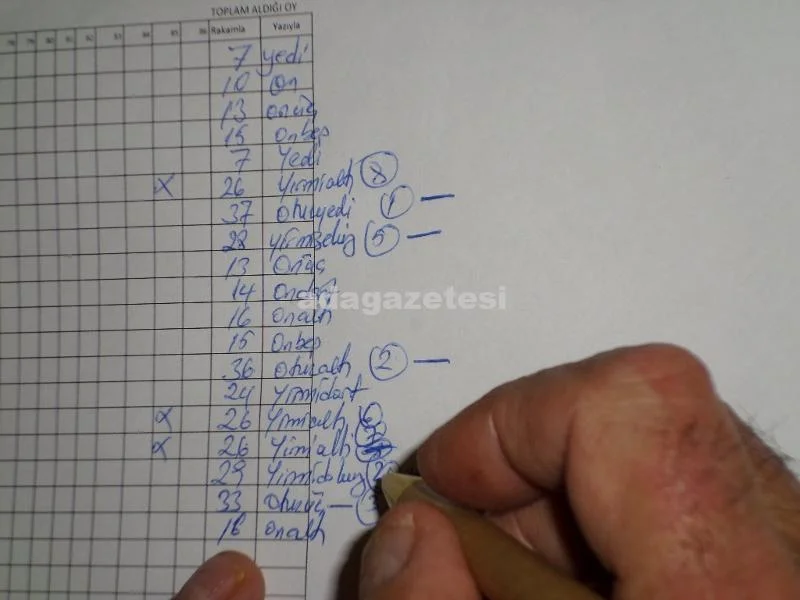 TOPLAM ALDIĞI OY
78 79 80 81 82 83 84 85 86 Rakamla Yazıyla
7 yedi
10 On
13 onüç
15 Onbeş
7 Yedi
X 26 Yirmialtı 8
37 otuzyedi 1 —
28 yirmisekiz 5 —
13 Onüç
14 Ondört
adagazetesi
16 Onaltı
15 Onbeş
36 otuzaltı 2 —
24 Yirmidört
X 26 Yirmialtı 6
X 26 Yirmialtı
29 Yirmidokuz
33 otuzüç — 3
16 onaltı